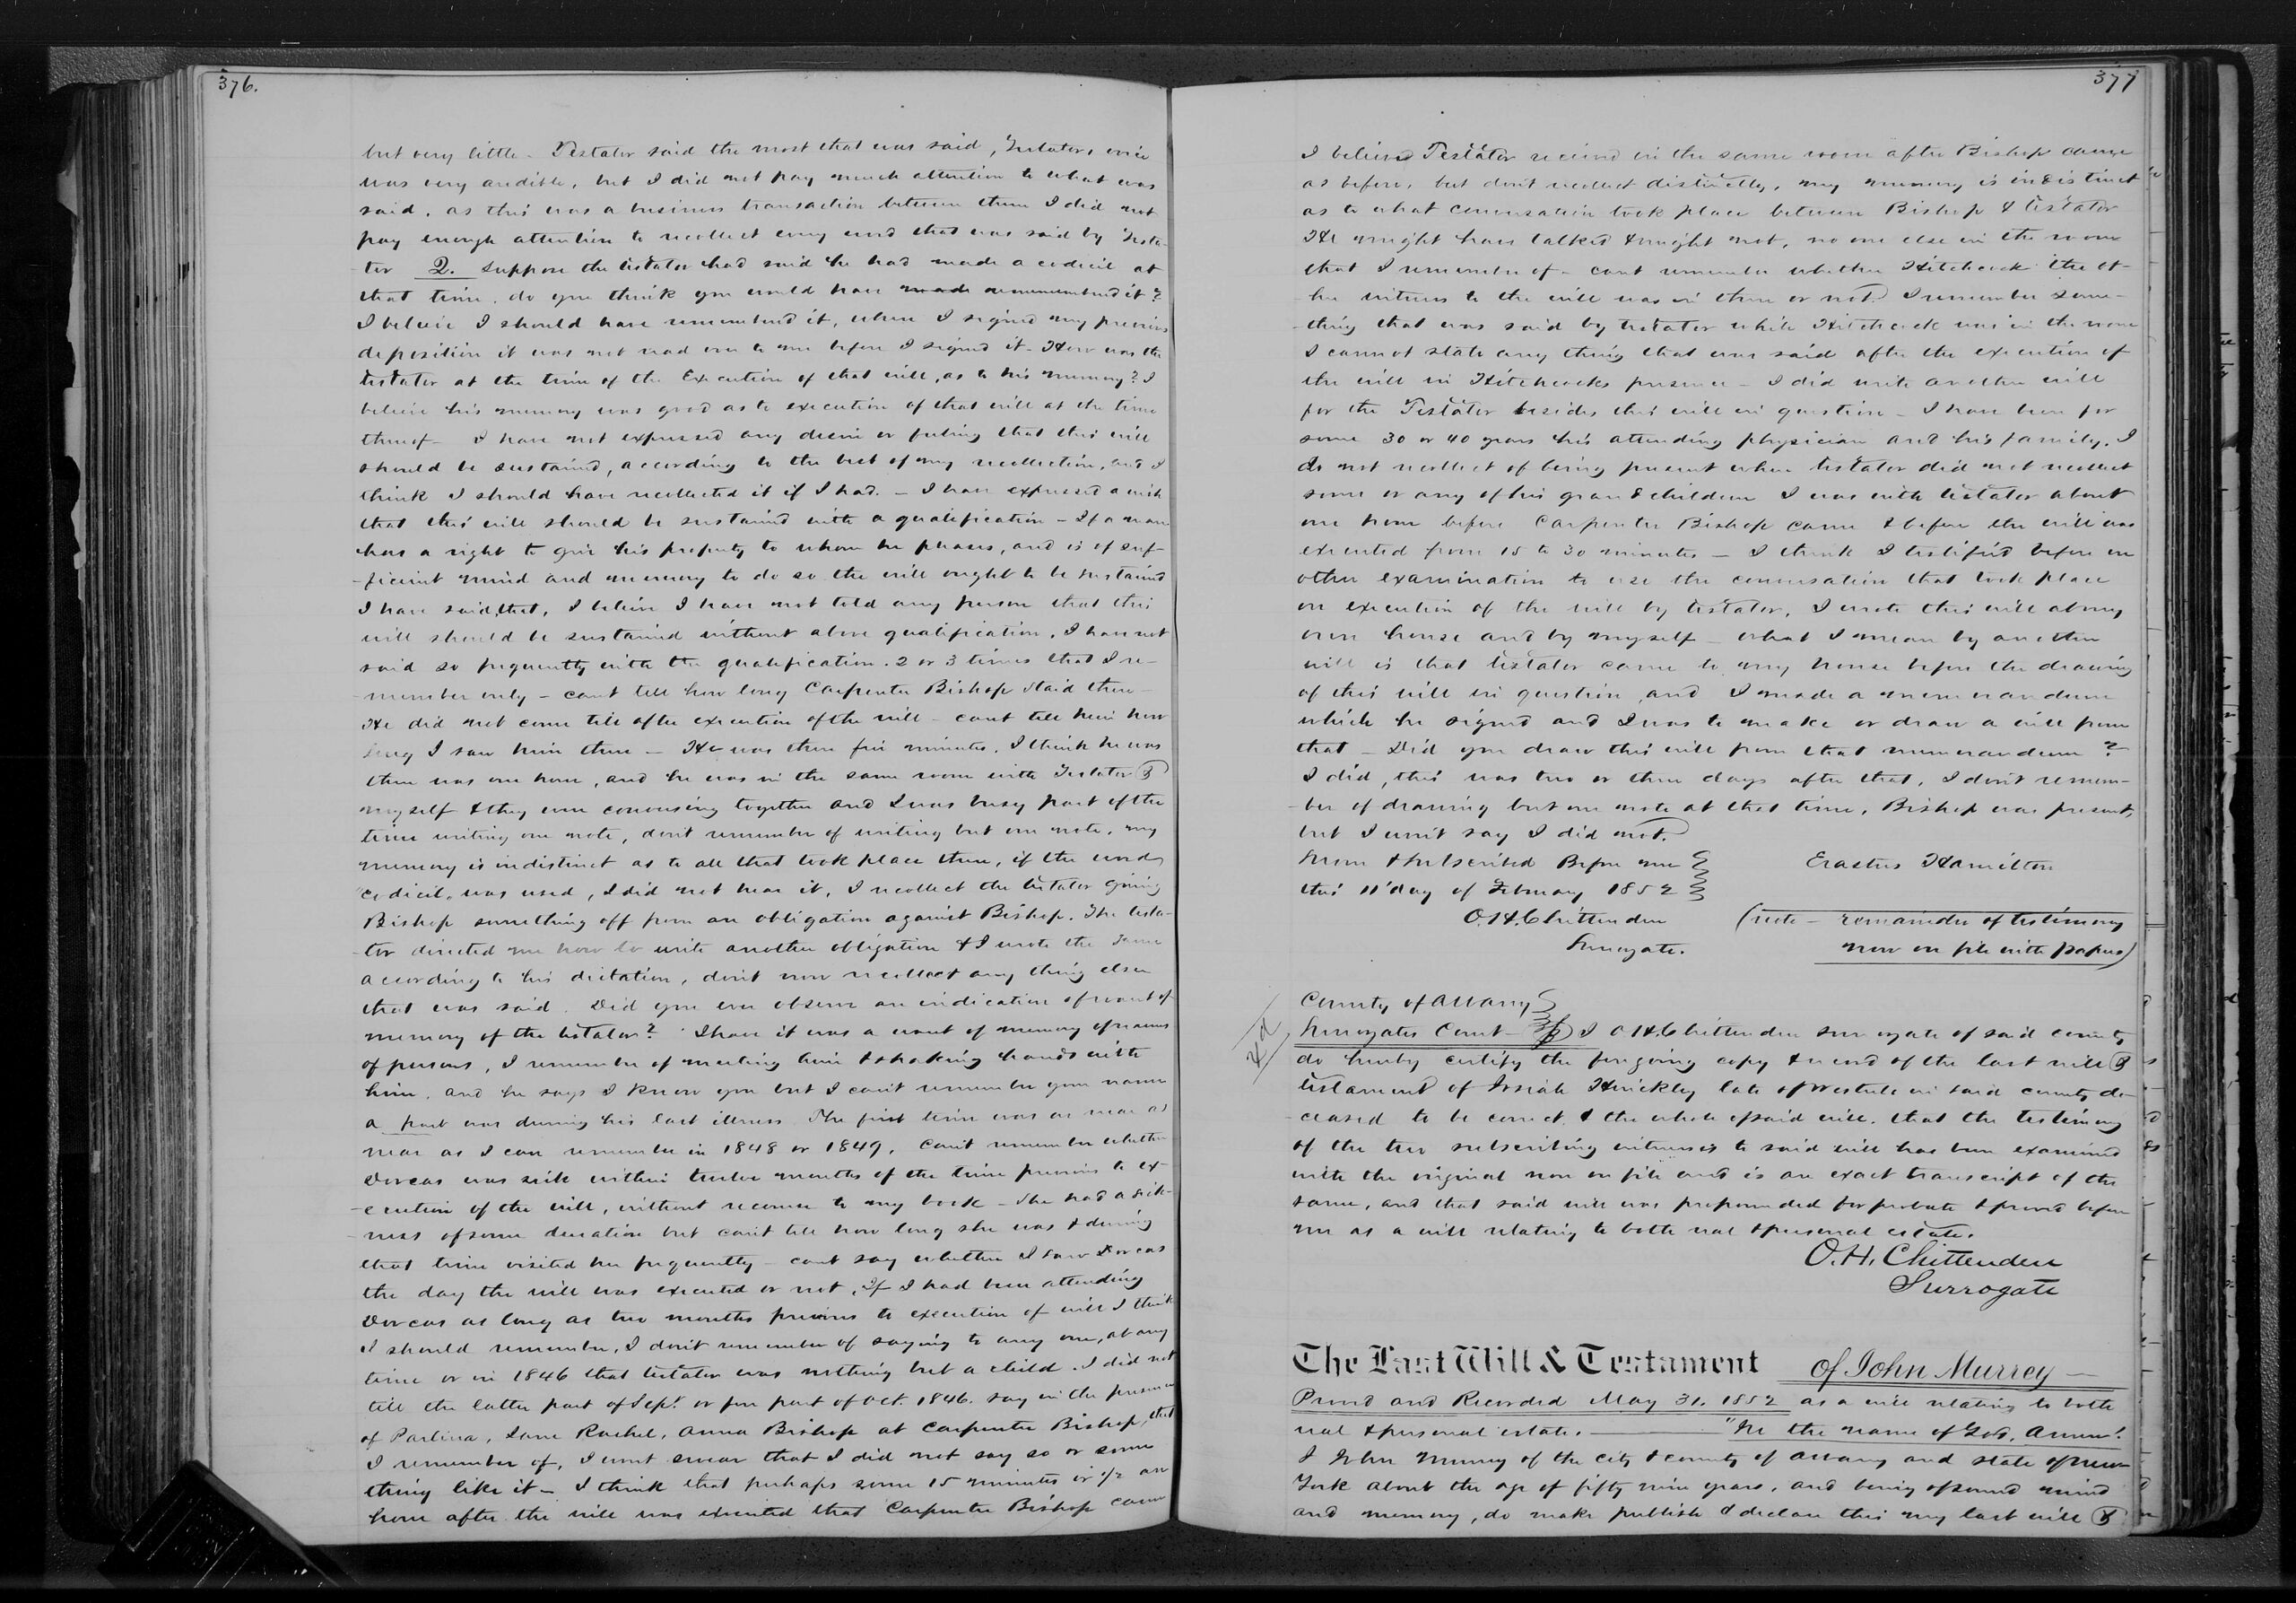 376.
but very little - Testator said the most that was said, Testators voice
was very audible, but I did not pay much attention to what was
said, as this was a business transaction between them I did not
pay enough attention to recollect every word that was said by Testa-
tor Q. Suppose the testator had said he had made a codicil at
that time, do you think you would have made remembered it?
I believe I should have remembered it, when I signed my previous
deposition it was not read over to me before I signed it - How was the
testator at the time of the Execution of that will, as to his memory? I
believe his memory was good as to execution of that will at the time
thereof - I have not expressed any desire or feeling that this will
should be sustained, according to the best of my recollection, and I
think I should have recollected it if I had. - I have expressed a wish
that this will should be sustained with a qualification - If a man
has a right to give his property to whom he pleases, and is of suf-
-ficient mind and memory to do so the will ought to be sustained
I have said that, I believe I have not told any person that this
will should be sustained without above qualification, I have not
said so frequently with the qualification. 2 or 3 times that I re-
-member only - cant tell how long Carpenter Bishop staid there -
He did not come till after execution of the will - cant tell him how
long I saw him there - He was there five minutes, I think he was
there was one hour, and he was in the same room with Testator &
myself & they were conversing together and I was busy part of the
time writing one note, dont remember of writing but one note, my
memory is indistinct as to all that took place there, if the word
"codicil" was used, I did not hear it, I recollect the testator giving
Bishop something off from an obligation against Bishop. The testa-
-tor directed me how to write another obligation & I wrote the same
according to his dictation, dont now recollect any thing else
that was said. Did you ever observe an indication of want of
memory of the testator? I have it was a want of memory of names
of persons, I remember of meeting him & shaking hands with
him, and he says I know you but I can't remember your name
a part was during his last illness The first time was as near as
near as I can remember in 1848 or 1849, Can't remember whether
Dorcas was sick within twelve months of the time previous to ex-
-ecution of the will, without recourse to my book - She had a sick-
ness of some duration but can't tell how long she was & during
that time visited her frequently - cant say whether I saw Dorcas
the day the will was executed or not, If I had been attending
Dorcas as long as two months previous to execution of will I think
I should remember, I don't remember of saying to any one, at any
time or in 1846 that testator was nothing but a child. I did not
till the latter part of Sept. or fore part of Oct. 1846. say in the presence
of Paulina, Jane Rachel, Anna Bishop at Carpenter Bishop, that
I remember of, I wont swear that I did not say so or some
thing like it - I think that perhaps some 15 minutes or 1/2 an
hour after the will was executed that Carpenter Bishop came
377
I believe Testator recieved in the same room after Bishop came
as before, but don't recollect distinctly, my memory is indistinct
as to what conversation took place between Bishop & testator
He might have talked & might not, no one else in the room
that I remember of - cant remember whether Hitchcock the ot-
-her witness to the will was in there or not. I remember some-
-thing that was said by testator while Hitchcock was in the room
I cannot state any thing that was said after the execution of
the will in Hitchcocks presence - I did write another will
for the Testator besides this will in question - I have been for
some 30 or 40 years his attending physician and his family. I
do not recollect of being present when testator did not recollect
some or any of his grand children I was with testator about
one hour before Carpenter Bishop came & before the will was
executed from 15 to 30 minutes - I think I testified before on
other examination to use the conversation that took place
on execution of the will by testator, I wrote this will at my
own house and by myself - what I mean by another
will is that testator came to my house before the drawing
of this will in question, and I made a memorandum
which he signed and I was to make or draw a will from
that - Did you draw this will from that memorandum?
I did, this was two or three days after that, I don't remem-
-ber of drawing but one note at that time, Bishop was present,
but I wont say I did not.
Sworn & Subscribed Before me
this 11' day of February 1852
Erastus Hamilton
O. H. Chittenden
Surrogate.
(note - remainder of testimony
now on file with papers)
County of Albany
Surrogates Court ss I O. H. Chittenden surrogate of said county
do hereby certify the foregoing copy & record of the last will &
testament of Josiah Hinckley late of Westerlo in said county de-
-ceased to be correct & the whole of said will. that the testimony
of the two subscribing witnesses to said will has been examined
with the original now on file and is an exact transcript of the
same, and that said will was propounded for probate & proved before
me as a will relating to both real & personal estate.
O. H. Chittenden
Surrogate
The Last Will & Testament of John Murrey -
Proved and Recorded May 31. 1852 as a will relating to both
real & personal estate. - "In the name of God, Amen".
I John Murrey of the city & county of Albany and state of New
York about the age of fifty nine years, and being of sound mind
and memory, do make publish & declare this my last will &